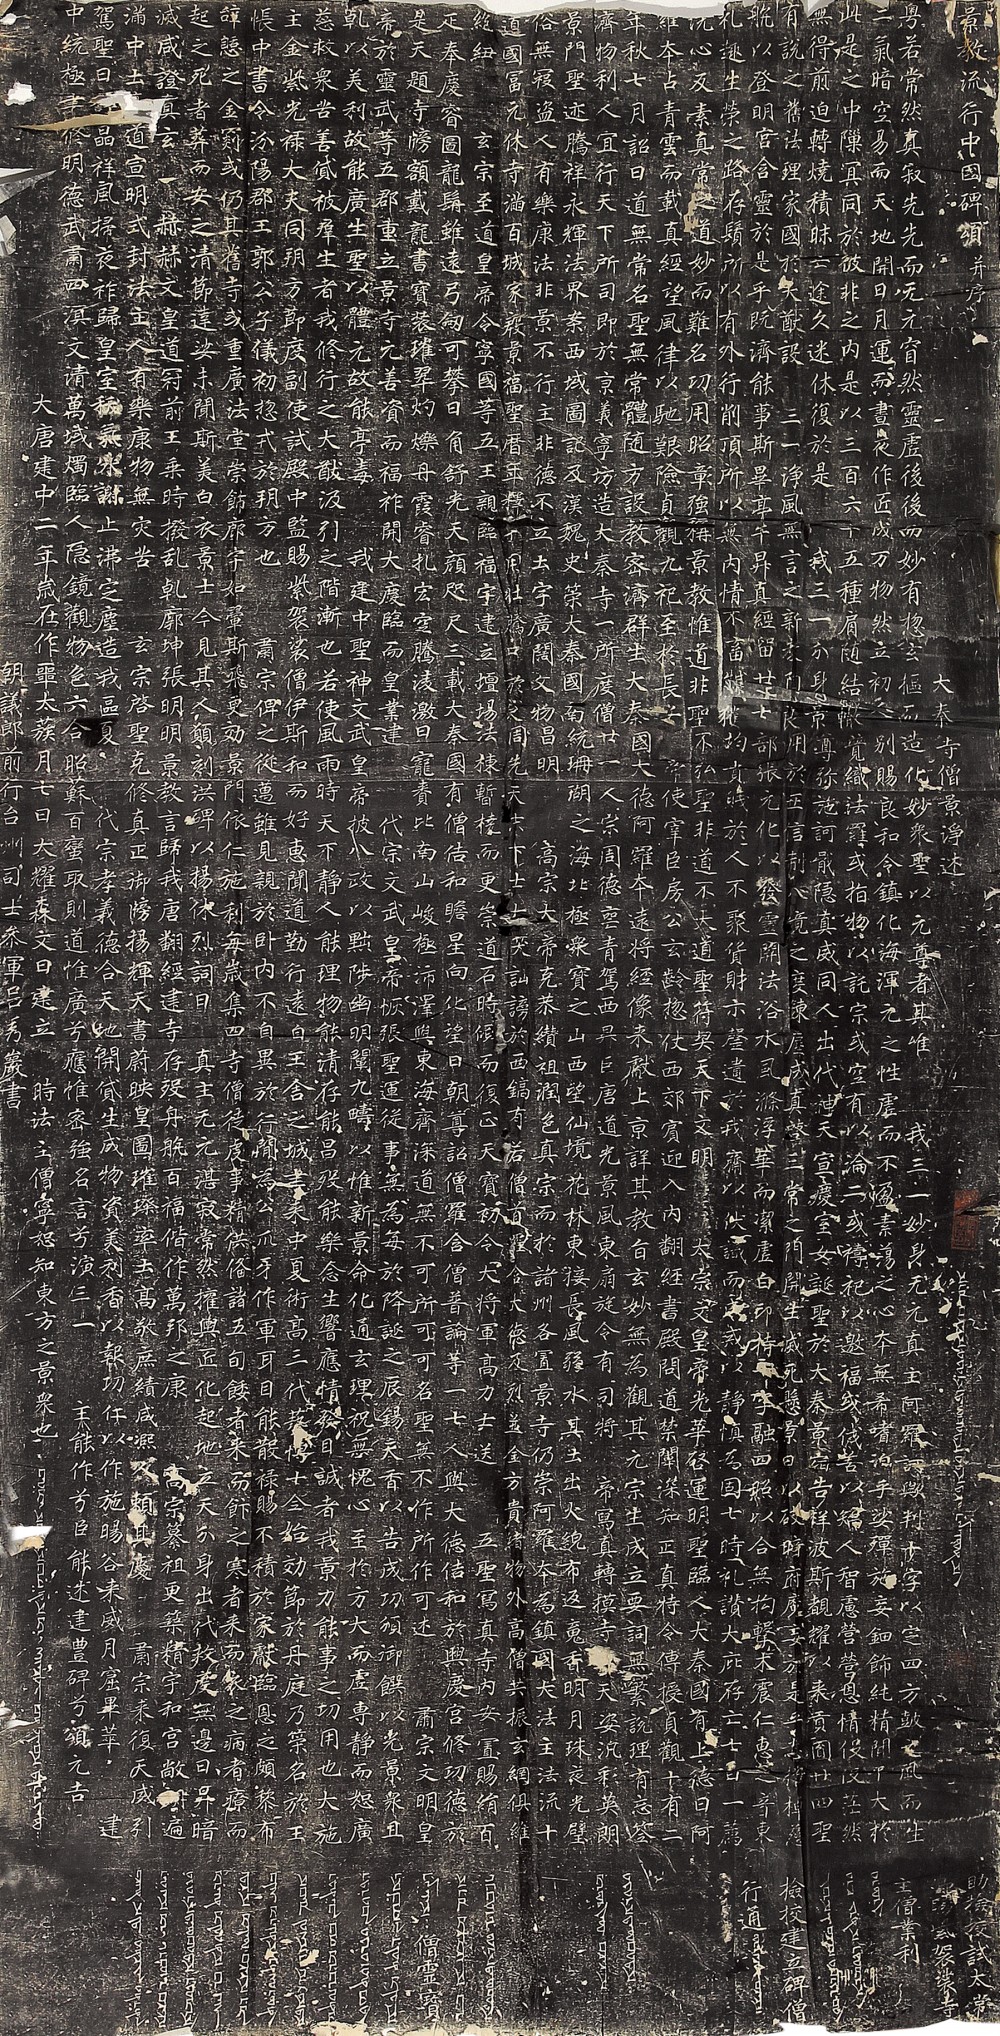 景教流行中國碑頌并序
大秦寺僧景淨述
粵若常然真寂先先而无元窅然靈虛後後而妙有惣玄樞而造化妙衆聖以元尊者其唯 我三一妙身无元真主阿羅訶歟判十字以定四方鼓元風而生
二氣暗空易而天地開日月運而晝夜作匠成万物然立初人別賜良和令鎮化海渾元之性虛而不盈素蕩之心本無希嗜洎乎娑殫施妄鈿飾純精閒平大於
此是之中隟冥同於彼非之內是以三百六十五種肩随結轍競織法羅或指物以託宗或空有以淪二或禱祀以邀福或伐善以矯人智慮營營恩情役役茫然
無得煎迫轉燒積昧亡途久迷休復於是 我三一分身景尊弥施訶戢隱真威同人出代神天宣慶室女誕聖於大秦景宿告祥波斯覩耀以來貢圓廿四聖
有說之舊法理家國於大猷設 三一淨風無言之新教陶良用於正信制八境之度鍊塵成真啓三常之門開生滅死懸景日以破暗府魔妄於是乎悉摧棹慈
航以登明宮含靈於是乎既濟能事斯畢亭午昇真經留廿七部張元化以發靈關法浴水風滌浮華而潔虛白印持十字融四照以合無拘擊木震仁惠之音東
礼趣生榮之路存鬚所以有外行削頂所以無內情不畜臧獲均貴賤於人不聚貨財示罄遺於我齋以伏識而成戒以靜慎為固七時礼讚大庇存亡七日一薦
洗心反素真常之道妙而難名功用昭彰強稱景教惟道非聖不弘聖非道不大道聖符契天下文明 太宗文皇帝光華啓運明聖臨人大秦國有上德曰阿
羅本占青雲而載真經望風律以馳艱險貞觀九祀至於長安 帝使宰臣房公玄齡惣仗西郊賓迎入內翻經書殿問道禁闈深知正真特令傳授貞觀十有二
年秋七月詔曰道無常名聖無常體随方設教密濟群生大秦國大德阿羅本遠將經像來獻上京詳其教旨玄妙無為觀其元宗生成立要詞無繁說理有忘筌
濟物利人宜行天下所司即於京義寧坊造大秦寺一所度僧廿一人宗周德喪青駕西昇巨唐道光景風東扇旋令有司將 帝寫真轉摸寺壁天姿汎彩英朗
景門聖迹騰祥永輝法界案西域圖記及漢魏史策大秦國南統珊瑚之海北極衆寶之山西望仙境花林東接長風弱水其土出火綄布返魂香明月珠夜光璧
俗無寇盜人有樂康法非景不行主非德不立土宇廣闊文物昌明 高宗大帝克恭纘祖潤色真宗而於諸州各置景寺仍崇阿羅本為鎮國大法主法流十
道國富元休寺滿百城家殷景福聖曆年釋子用壯騰口於東周先天末下士大笑訕謗於西鎬有若僧首羅含大德及烈並金方貴緒物外高僧共振玄網俱維
絕紐 玄宗至道皇帝令寧國等五王親臨福宇建立壇場法棟暫橈而更崇道石時傾而復正天寶初令大將軍高力士送 五聖寫真寺內安置賜絹百
疋奉慶睿圖龍髯雖遠弓劒可攀日角舒光天顏咫尺三載大秦國有僧佶和瞻星向化望日朝尊詔僧羅含僧普論等一七人與大德佶和於興慶宮修功德於
是天題寺牓額戴龍書寶裝璀翠灼爍丹霞睿扎宏空騰凌激日寵賚比南山峻極沛澤與東海齊深道無不可所可可名聖無不作所作可述 肅宗文明皇
帝於靈武等五郡重立景寺元善資而福祚開大慶臨而皇業建 代宗文武皇帝恢張聖運從事無為每於降誕之辰錫天香以告成功頒御饌以光景衆且
乹以美利故能廣生聖以體元故能亭毒 我建中聖神文武皇帝披八政以黜陟幽明闡九疇以惟新景命化通玄理祝無愧心至於方大而虛專靜而恕廣
慈救衆苦善貸被群生者我修行之大猷汲引之階漸也若使風雨時天下靜人能理物能清存能昌歿能樂念生響應情發目誠者我景力能事之功用也大施
主金紫光祿大夫同朔方節度副使試殿中監賜紫袈裟僧伊斯和而好惠聞道勤行遠自王舍之城聿來中夏術高三代藝博十全始効節於丹庭乃策名於王
帳中書令汾陽郡王郭公子儀初惣戎於朔方也 肅宗俾之從邁雖見親於臥內不自異於行間為公爪牙作軍耳目能散祿賜不積於家獻臨恩之頗黎布
辭憩之金罽或仍其舊寺或重廣法堂崇飾廊宇如翬斯飛更効景門依仁施利每歲集四寺僧徒虔事精供備諸五旬餧者來而飰之寒者來而衣之病者療而
起之死者葬而安之清節達娑未聞斯美白衣景士今見其人願刻洪碑以揚休烈詞曰 真主无元湛寂常然權輿匠化起地立天分身出代救度無邊日昇暗
滅咸證真玄 赫赫文皇道冠前王乘時撥亂乹廓坤張明明景教言歸我唐翻經建寺存歿舟航百福偕作萬邦之康 高宗纂祖更築精宇和宮敞朗遍
滿中土真道宣明式封法主人有樂康物無灾苦 玄宗啓聖克修真正御牓揚輝天書蔚映皇圖璀璨率土高敬庶績咸熙人賴其慶 肅宗來復天威引
駕聖日舒晶祥風掃夜祚歸皇室祅氛永謝止沸定塵造我區夏 代宗孝義德合天地開貸生成物資美利香以報功仁以作施暘谷來威月窟畢萃 建
中統極聿修明德武肅四溟文清萬域燭臨人隱鏡觀物色六合昭蘇百蠻取則道惟廣兮應惟密強名言兮演三一 主能作兮臣能述建豐碑兮頌元吉
大唐建中二年歲在作噩太蔟月七日大耀森文日建立 時法主僧寧恕知東方之景衆也
朝議郎前行台州司士參軍呂秀巖書
助檢校試太常
卿賜紫袈裟寺
主僧業利
檢校建立碑僧
行通
僧靈寶